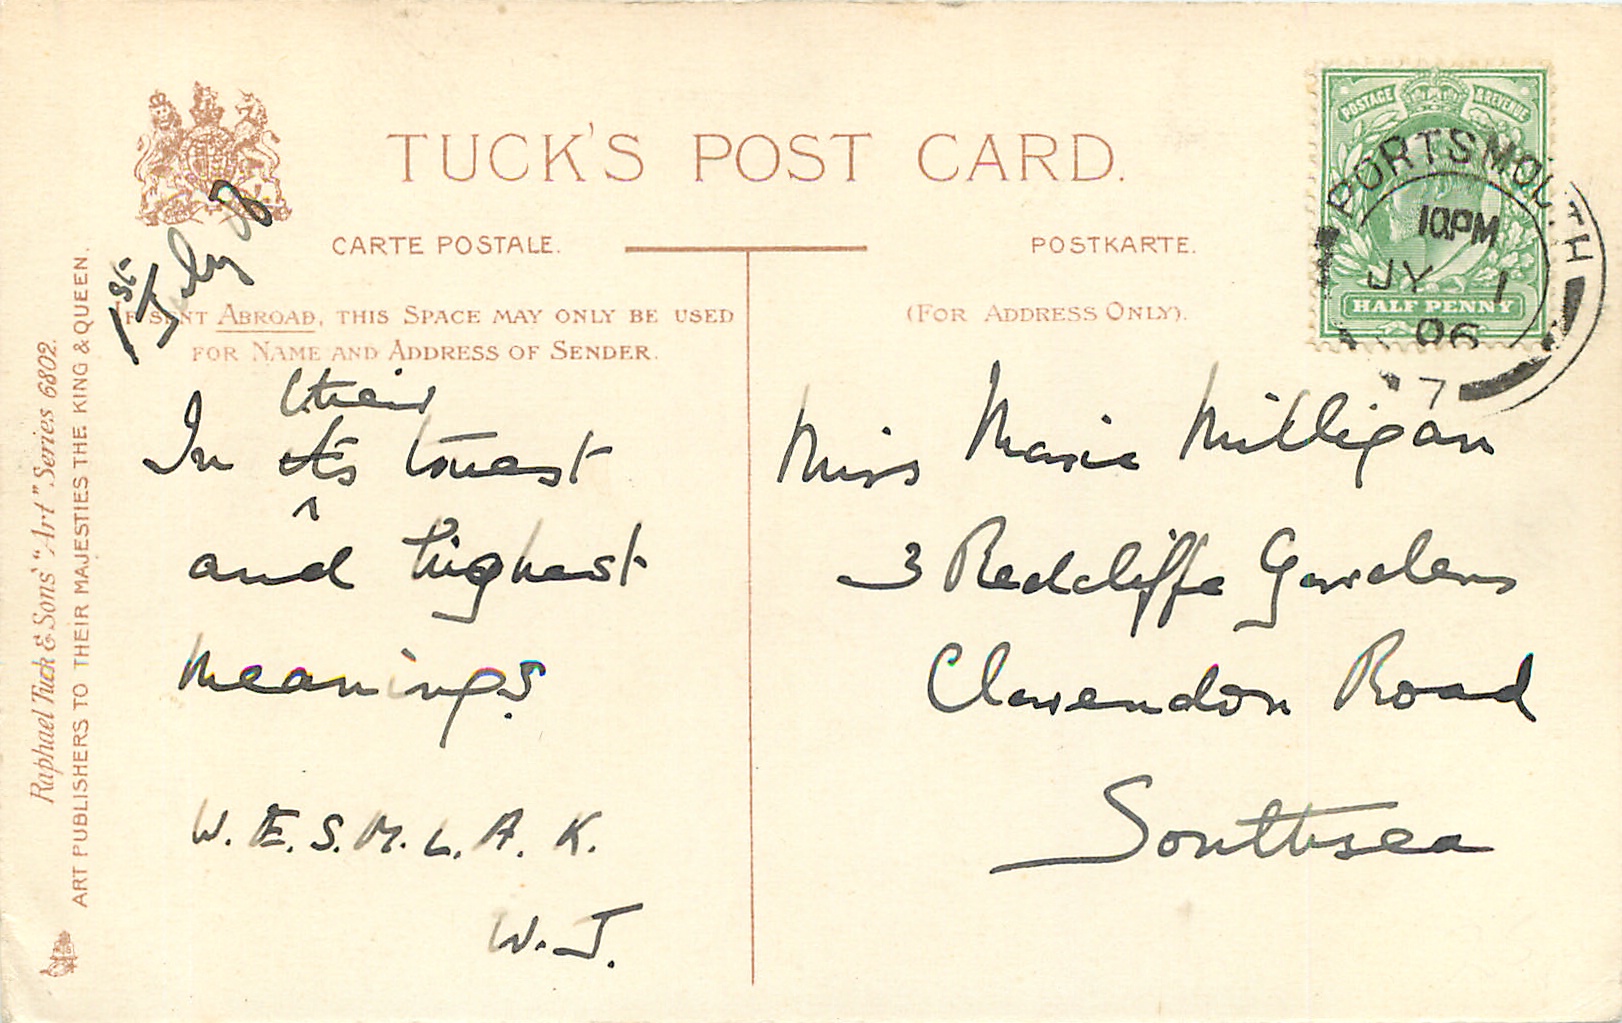 TUCK'S POST CARD.
CARTE POSTALE.
POSTKARTE.
IF SENT ABROAD, THIS SPACE MAY ONLY BE USED
FOR NAME AND ADDRESS OF SENDER.
(FOR ADDRESS ONLY).
Raphael Tuck & Sons' "Art" Series 6802.
ART PUBLISHERS TO THEIR MAJESTIES THE KING & QUEEN.
POSTAGE & REVENUE
HALF PENNY
PORTSMOUTH
10.PM
JY 1
06
7
1st July 06
their
In its truest
and highest
meanings.
W. E. S. M. L. A. K.
W. J.
Miss Marie Milligan
3 Redcliffe Gardens
Clarendon Road
Southsea